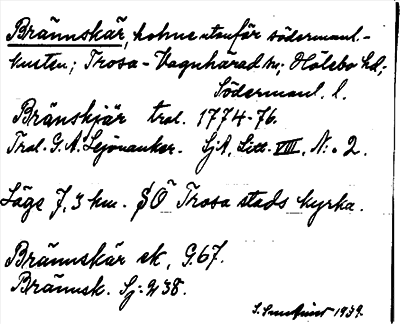 Brännskär, holme utanför södermanl.-
kusten; Trosa-Vagnhärad sn; Hölebo hd;
Södermanl. l.
Bränskjär trol. 1774-76.
Trol. G. A. Leijonanker. SjA, Litt. VIII, N:o 2.
Läge 7,3 km. SÖ Trosa stads kyrka.
Brännskär ek, G.67.
Brännsk. Sj: 238.
1939.